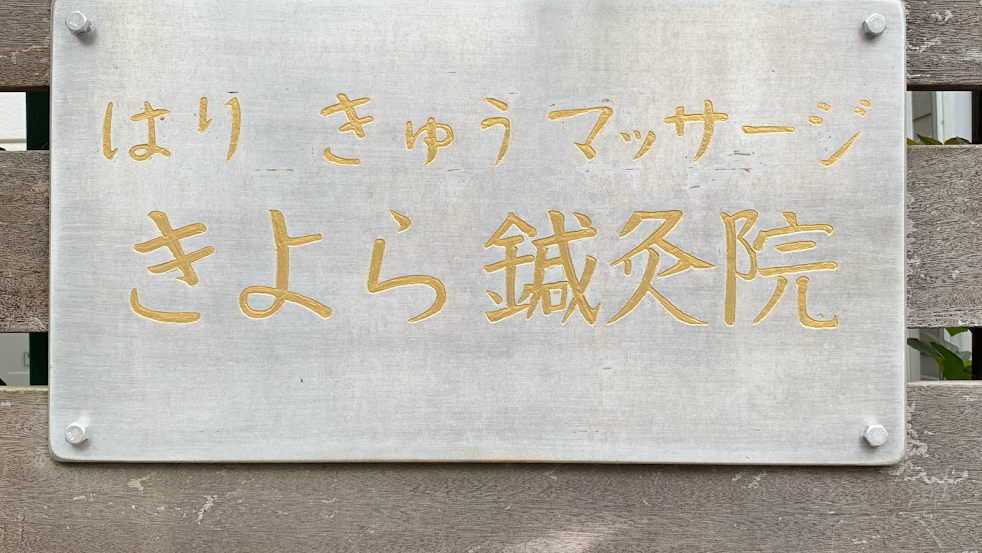 はり きゅう マッサージ
きよら鍼灸院